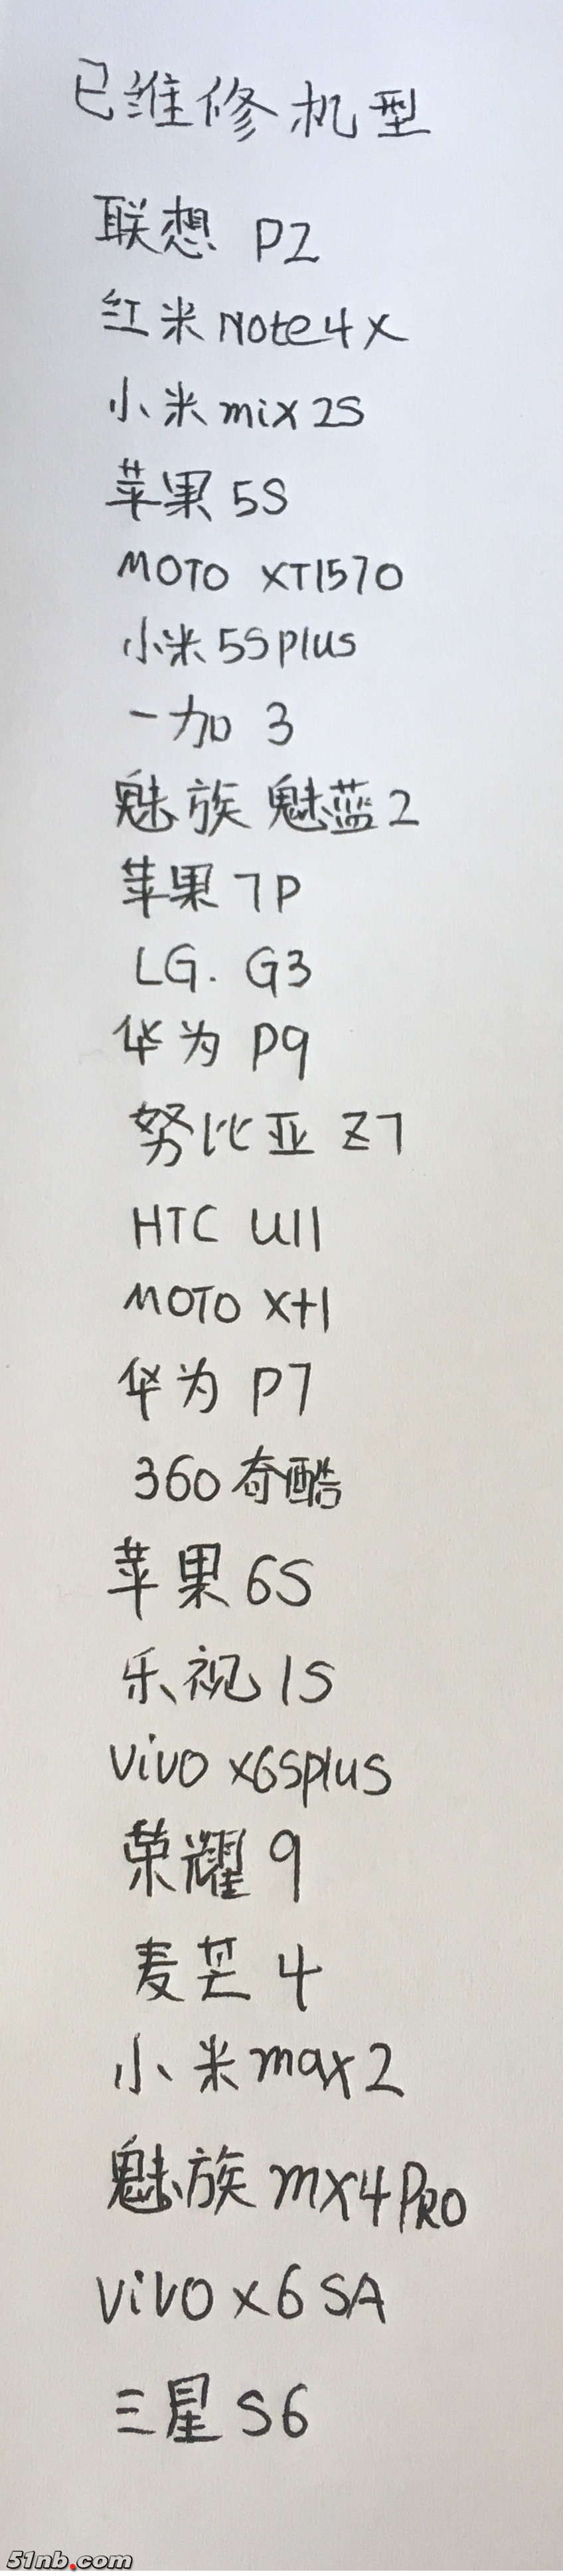 已维修机型
联想 P2
红米Note4X
小米mix2S
苹果5S
MOTO XT1570
小米5Splus
一加 3
魅族 魅蓝2
苹果7P
LG. G3
华为 P9
努比亚 Z7
HTC U11
MOTO X+1
华为 P7
360奇酷
苹果6S
乐视1S
vivo x6splus
荣耀9
麦芒4
小米max2
魅族mx4PRO
vivo x6SA
三星S6
51nb.com